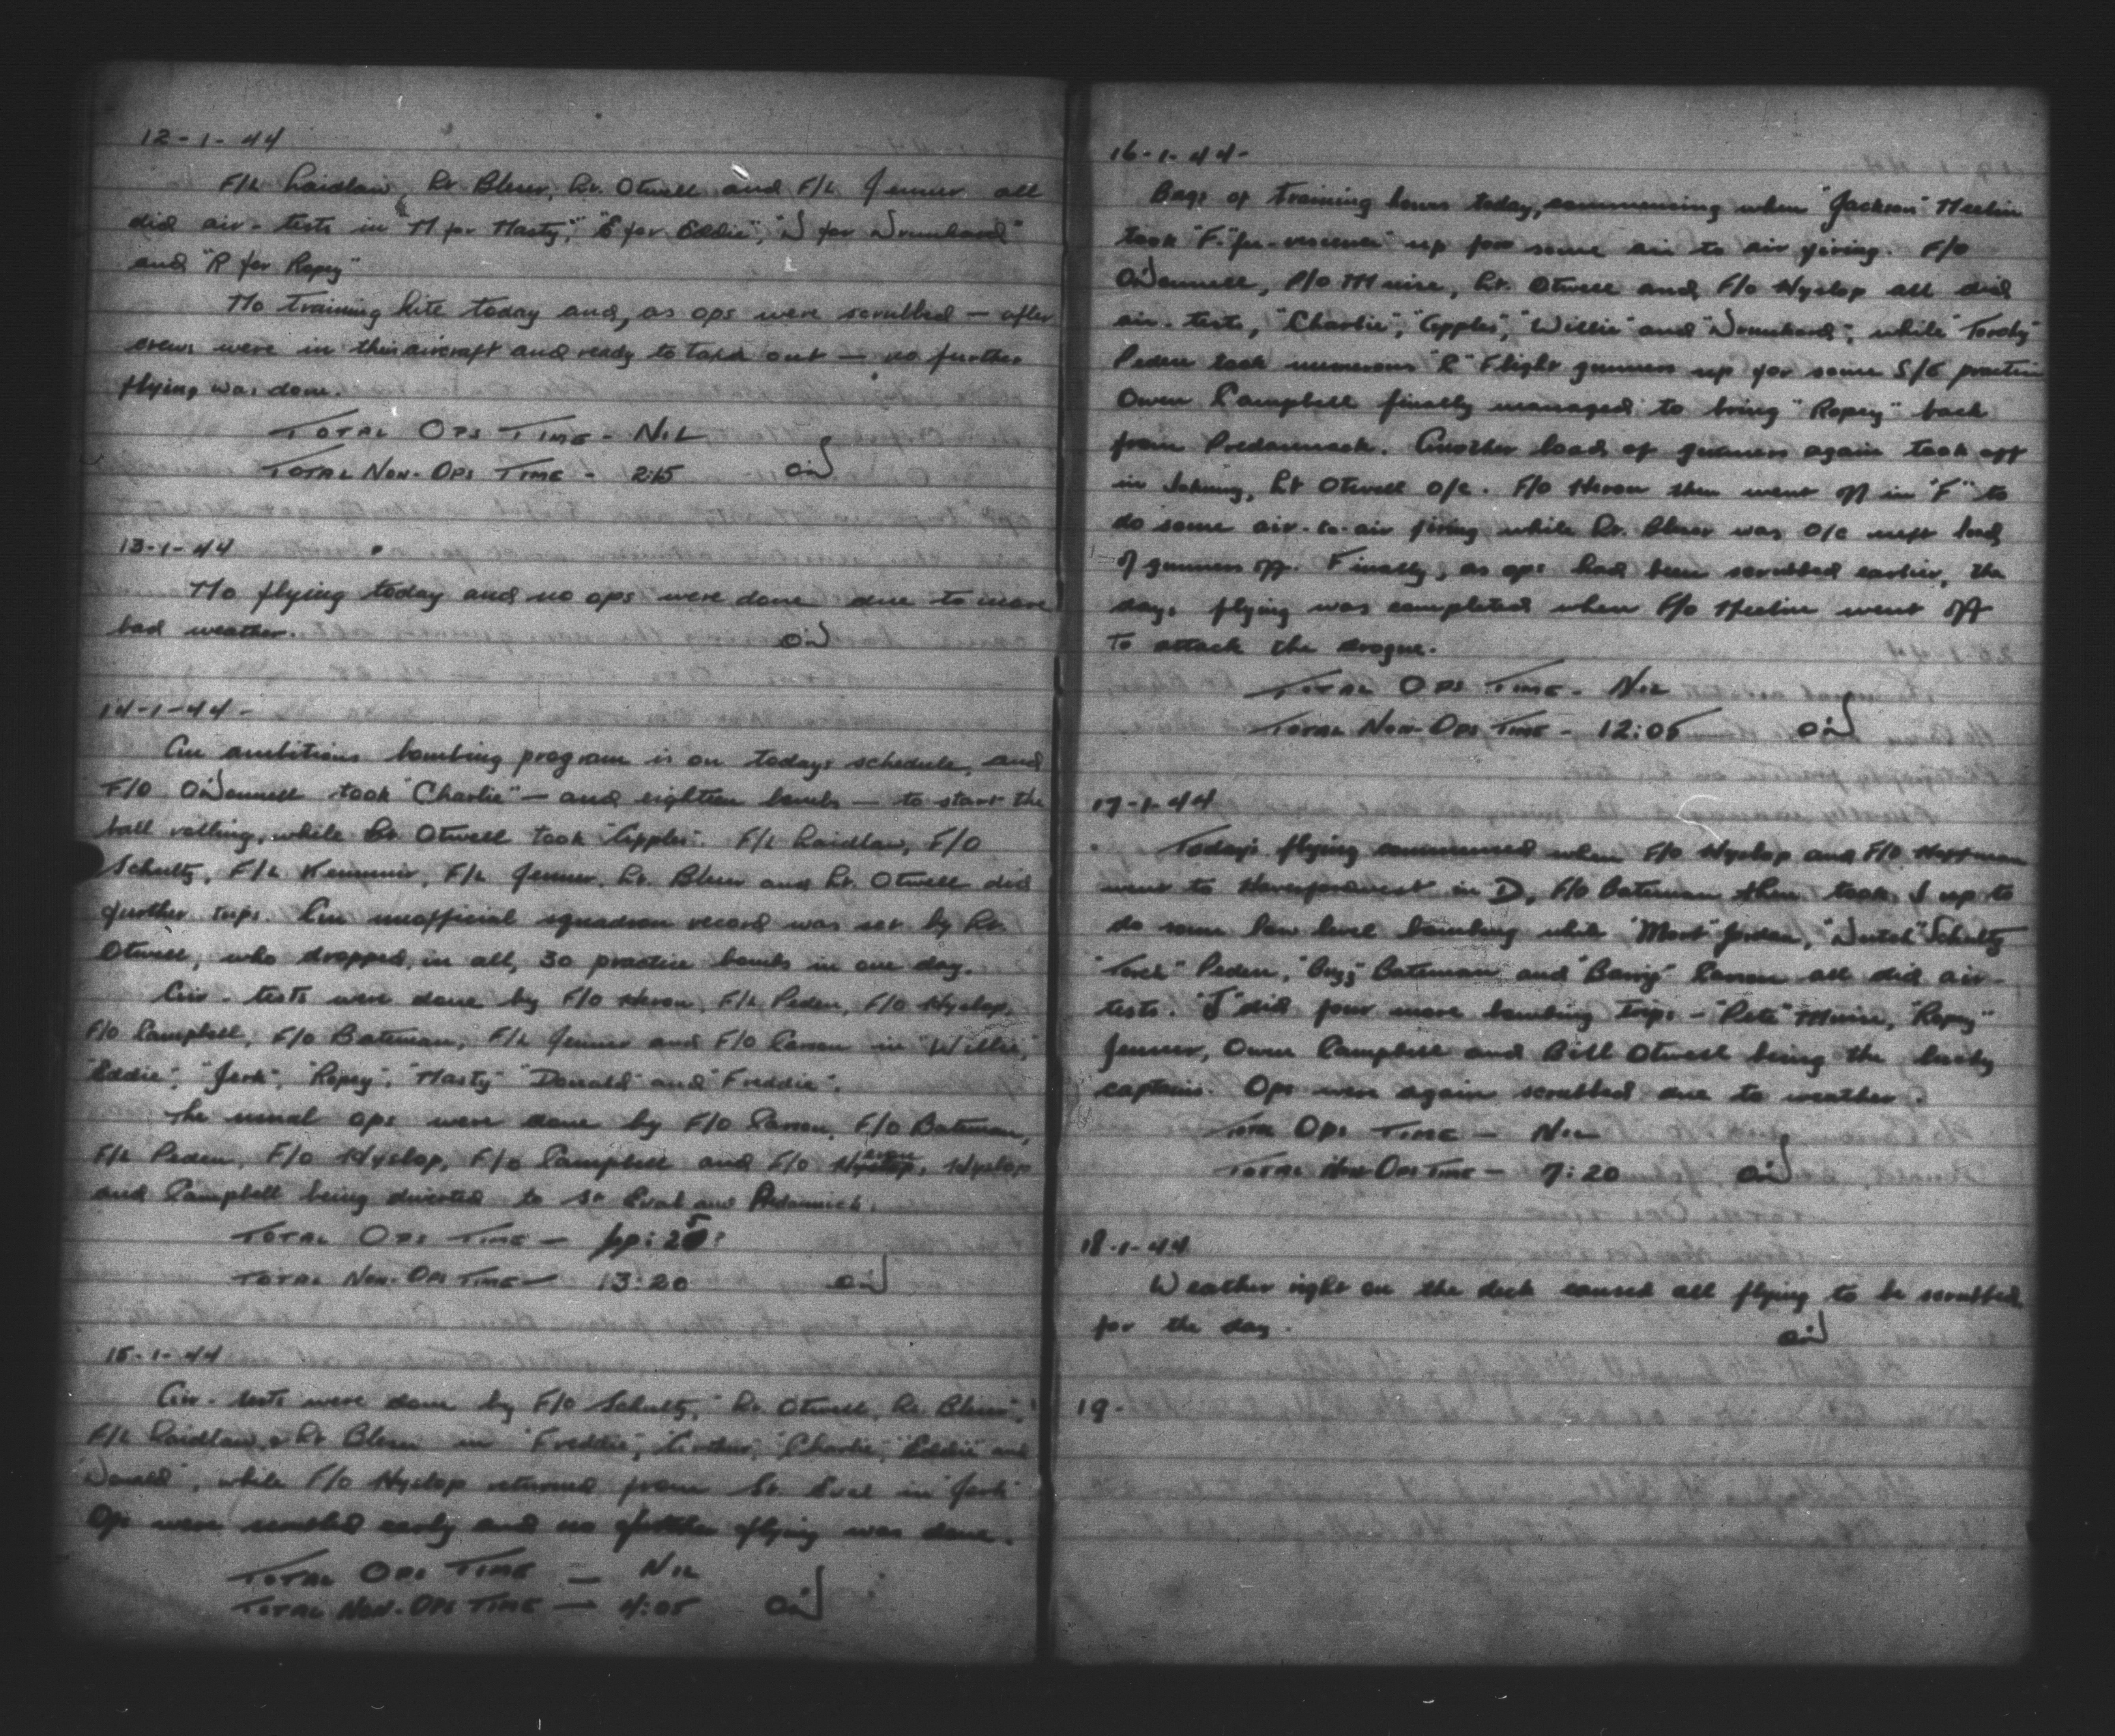 12-1-44
F/L Laidlaw, Lt Bleser, Lt. Otwell and F/L Jenner all
did air-tests in "N for Nasty", "E for Eddie", "D for Drunkard"
and "R for Ropey"
No training kite today and, as ops were scrubbed — after
crews were in their aircraft and ready to take out — no further
flying was done.
Total Ops Time - Nil
Total Non-Ops Time - 2:15
13-1-44
No flying today and no ops were done due to more
bad weather.
14-1-44-
An ambitious bombing program is on todays schedule, and
F/O O'Donnell took "Charlie" — and eighteen bombs — to start the
ball rolling, while Lt. Otwell took "Apples". F/L Laidlaw, F/O
Schultz, F/L Jenner, Lt. Bleser and Lt. Otwell did
further trips. An unofficial squadron record was set by Lt.
Otwell, who dropped, in all, 30 practice bombs in one day.
Air-tests were done by F/O Heron, F/L Peden, F/O Hyslop,
F/O Campbell, F/O Bateman, F/L Jenner and F/O Carson in "Willie",
"Eddie", "Jerk", "Ropey", "Nasty" "Donald" and "Freddie".
The usual ops were done by F/O Carson, F/O Bateman,
F/L Peden, F/O Hyslop, F/O Campbell and F/O Heron, Hyslop
and Campbell being diverted to St Eval and Predannick.
Total Ops Time —
Total Non-Ops Time — 13:20
15-1-44
Air-tests were done by F/O Schultz, Lt. Otwell, Lt. Bleser,
F/L Laidlaw & Lt Bleser in "Freddie", "Arthur", "Charlie", "Eddie" and
"Donald", while F/O Hyslop returned from St. Eval in "Jerk"
Ops were scrubbed early and no further flying was done.
Total Ops Time — Nil
Total Non-Ops Time — 4:05
16-1-44-
Bags of training hours today, commencing when "Jackson" Heelin
took "F" up for some air to air firing. F/O
O'Donnell, P/O Muise, Lt. Otwell and F/O Hyslop all did
air-tests, "Charlie", "Apples", "Willie" and "Drunkard", while "Torchy"
Peden took numerous "B" Flight gunners up for some S/E practice
Owen Campbell finally managed to bring "Ropey" back
from Predannack. Another load of gunners again took off
in Johnny, Lt Otwell o/c. F/O Heron then went off in "F" to
do some air-to-air firing while Lt. Bleser was o/c next load
of gunners off. Finally, as ops had been scrubbed earlier, the
days flying was completed when F/O Heelin went off
to attack the drogue.
Total Ops Time - Nil
Total Non-Ops Time - 12:05
17-1-44
Today's flying commenced when F/O Hyslop and F/O Hoffman
went to Haverfordwest in D, F/O Bateman then took J up to
do some low level bombing while "Mort" Jordan, "Dutch" Schultz
"Torch" Peden, Bateman and "Barry" Carson all did air-
tests. "J" did four more bombing trips - "Pete" Muise, "Ropey"
Jenner, Owen Campbell and Bill Otwell being the lucky
captains. Ops were again scrubbed due to weather.
Total Ops Time — Nil
Total Non-Ops Time — 7:20
18-1-44
Weather right on the deck caused all flying to be scrubbed
for the day.
19-